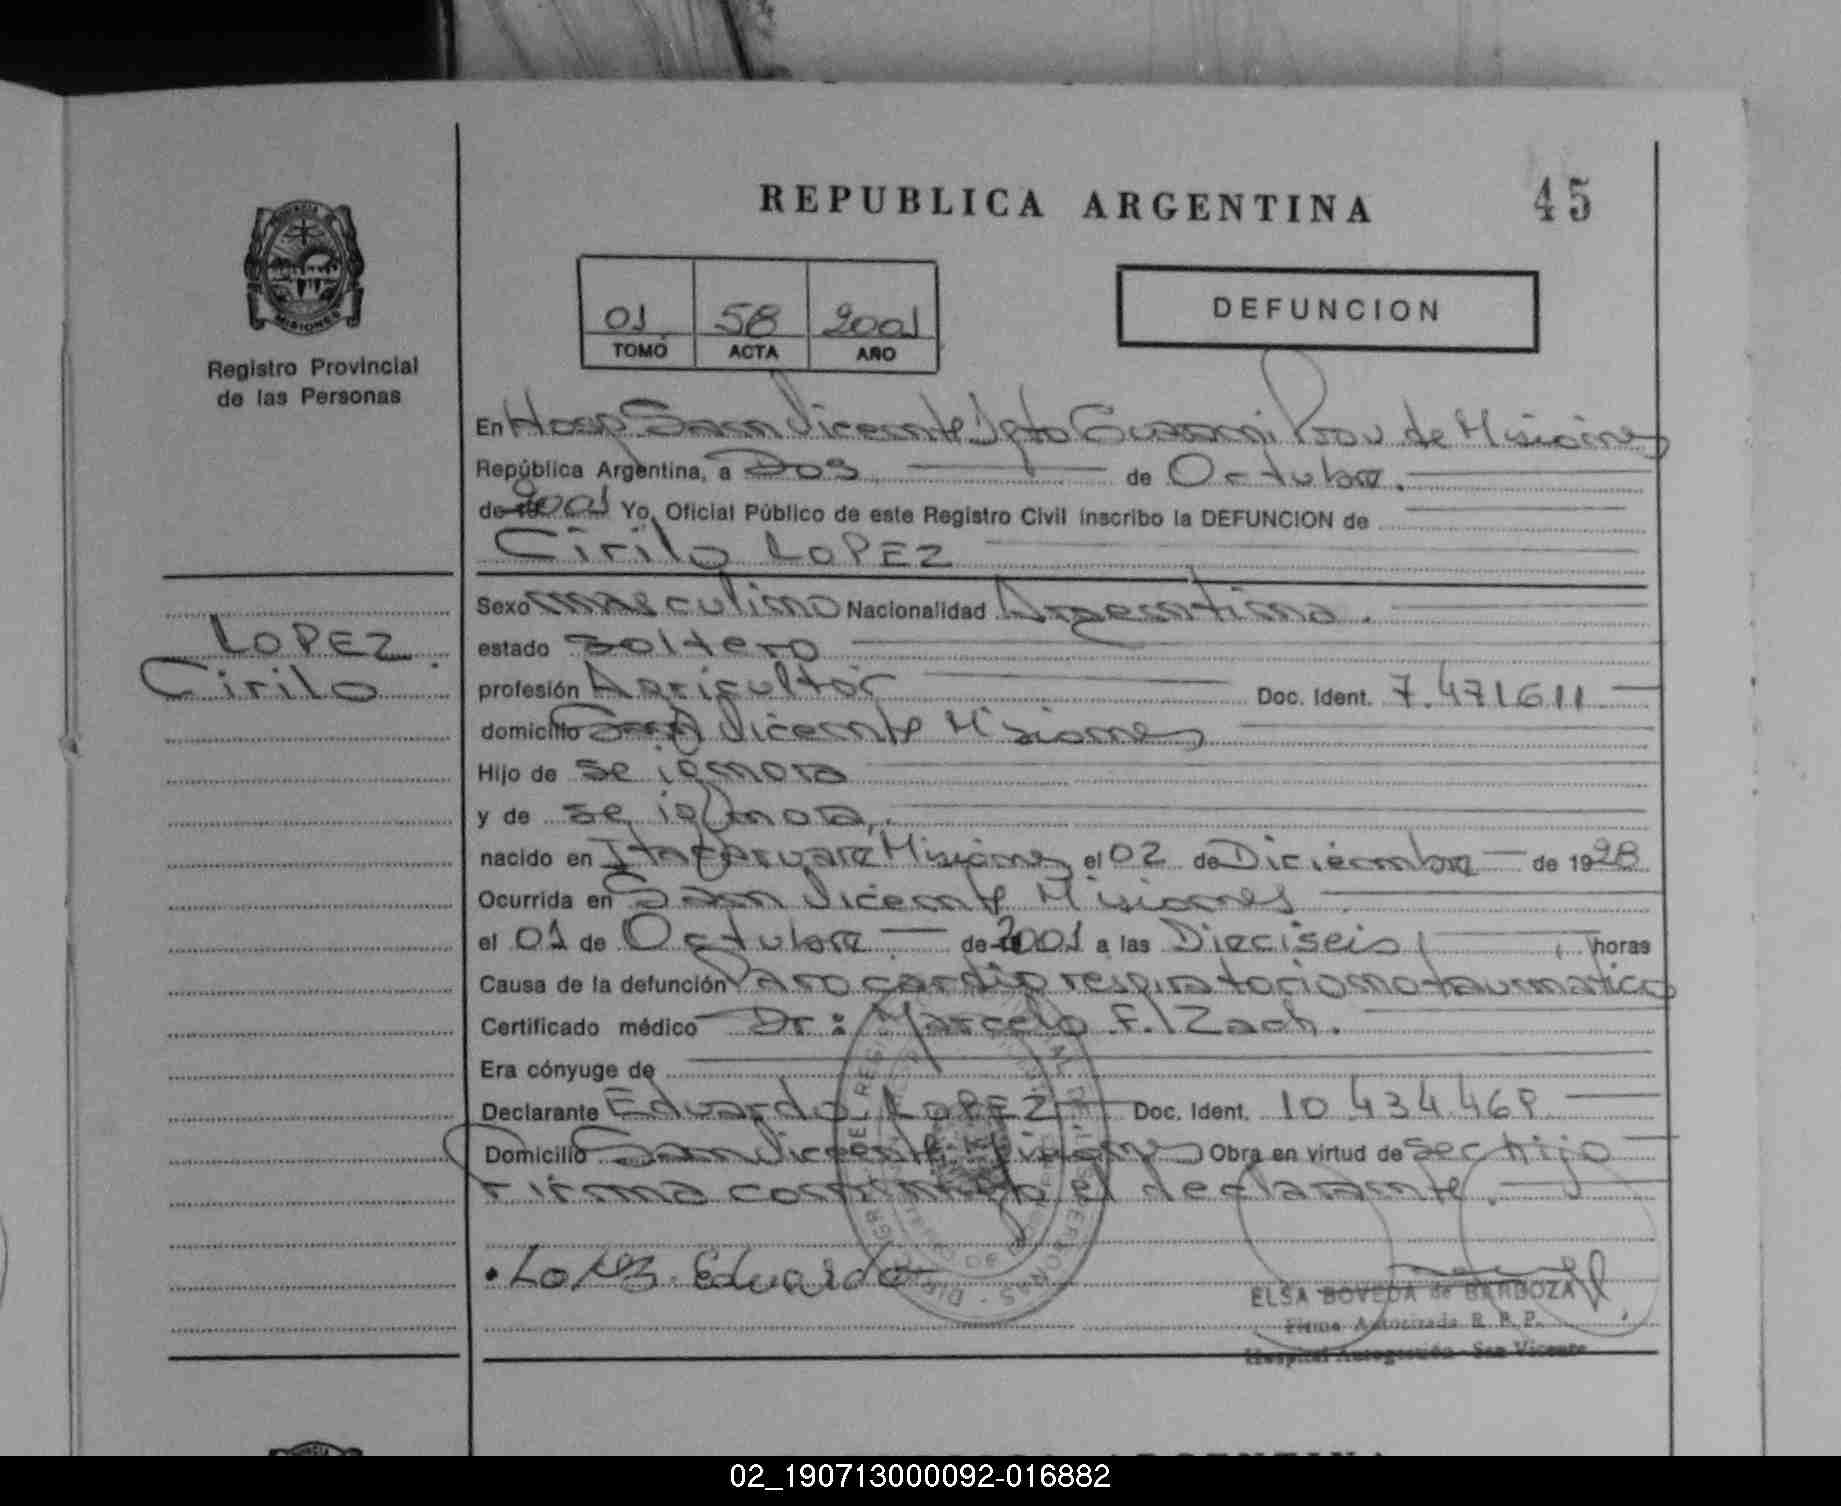 REPUBLICA ARGENTINA
45
PROVINCIA DE
MISIONES
Registro Provincial
de las Personas
01 58 2001
TOMO ACTA AÑO
DEFUNCION
En Hosp San Vicente Dpto Guarani Prov de Misiones
República Argentina, a Dos de Octubre.
de 19 2001 Yo, Oficial Público de este Registro Civil inscribo la DEFUNCION de
Cirilo LOPEZ
LOPEZ
Cirilo
Sexo masculino Nacionalidad Argentina.
estado soltero
profesión Agricultor Doc. Ident. 7.471611
domicilio San Vicente Misiones
Hijo de se ignora
y de se ignora
nacido en Itacaruare Misiones el 02 de Diciembre de 1928
Ocurrida en San Vicente Misiones
el 01 de Octubre de 2001 a las Dieciseis horas
Causa de la defunción Paro cardio respiratorio no traumatico
Certificado médico Dr: Marcelo F. Zach.
Era cónyuge de
Declarante Eduardo LOPEZ Doc. Ident. 10 434 468
Domicilio San Vicente Misiones Obra en virtud de ser hijo
Firma conmigo el declarante.
Lopez Eduardo
ELSA BOVEDA de BARBOZA
Firma Autorizada R. P. P.
Hospital Autogestión - San Vicente
02_190713000092-016882